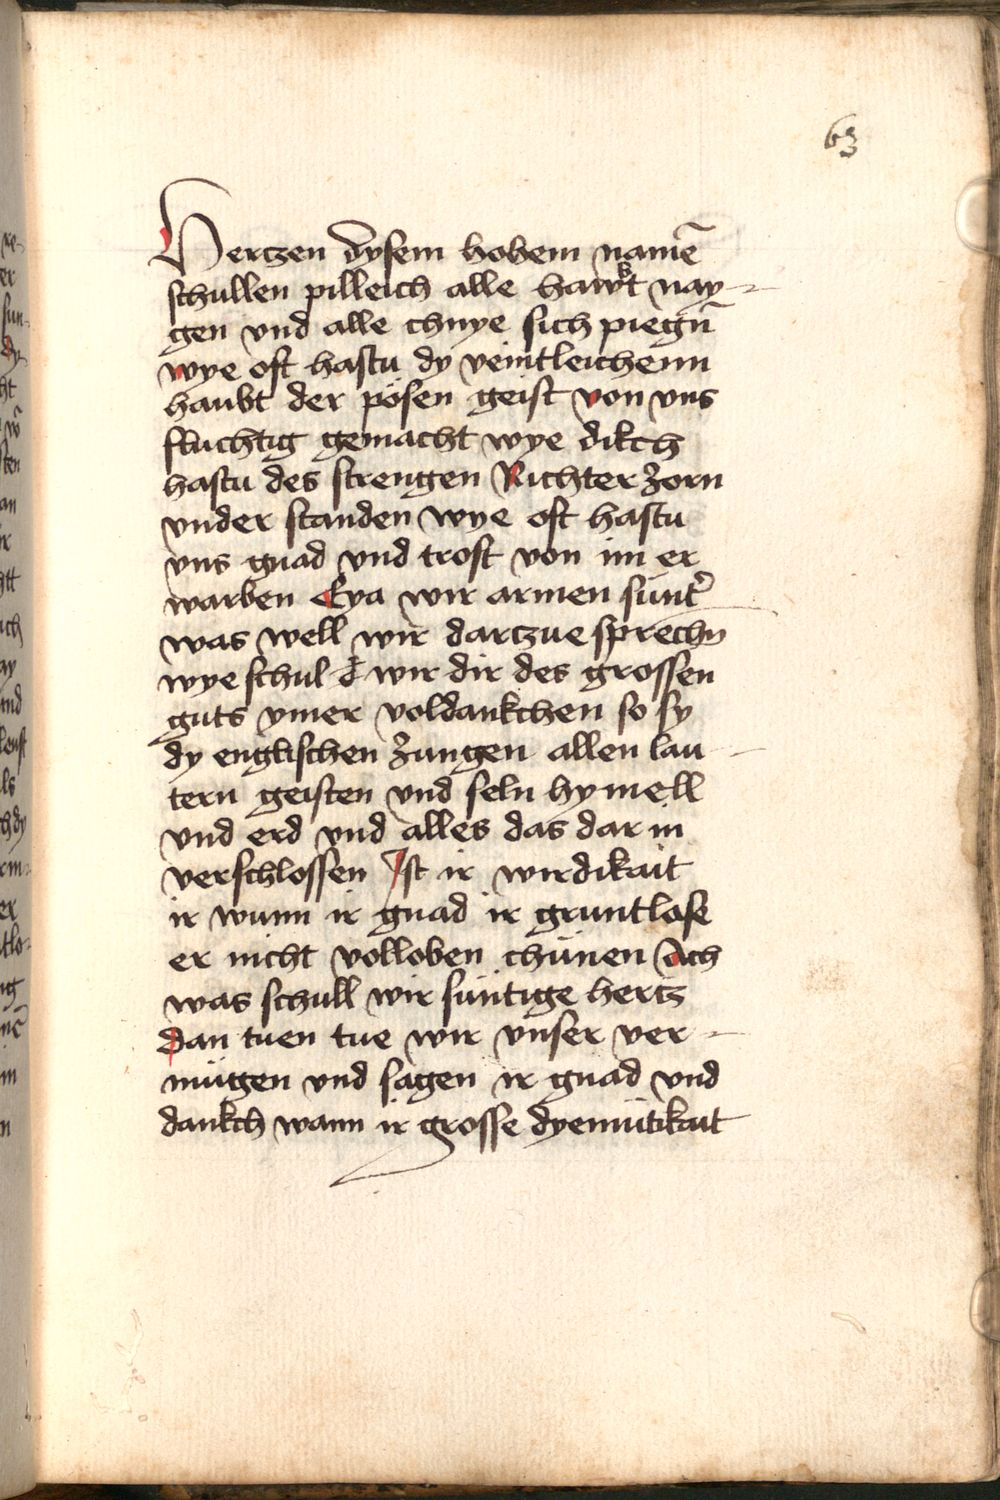 63
Hertzen dysem hohem namē
schullen pilleich alle hawbt nay-
gen vnd alle chnye sich piegn̄
wye oft hastu dy veintleichenn
haubt der pösen geist von vns
fluchtig gemacht wye dikch
hastu des strengen Richter zorn
vnder standen wye oft hastu
vns gnad vnd trost von im er
warben Eya wir armen sünt᷑
was well wir dartzue sprechn
wye schul wir dir des grossen
guts ymer voldankchen so sy
dy englischen zungen allen lau-
tern geisten vnd seln hymell
vnd erd vnd alles das dar in
verschlossen Ist ir wirdikait
ir wunn ir gnad ir gruntlose
er nicht volloben chünen Ach
was schull wir süntige hertz
dan tuen tue wir vnser ver-
mügen vnd sagen ir gnad vnd
dankch wann ir grosse dyemütikait